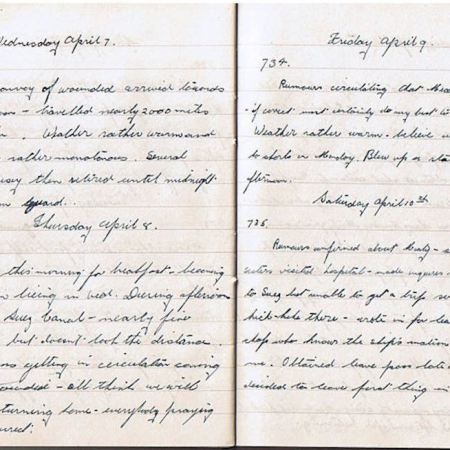 Wednesday April 7.
convoy of wounded arrived towards
noon - travelled nearly 2000 miles
. Weather rather warm and
rather monotonous. Several
then retired until midnight
guard...
Thursday April 8.
this morning for breakfast - becoming
living in bed. During afternoon
Suez Canal - nearly five
but doesn't look the distance.
getting in circulation coming
wounded - all think we will
returning home - everybody praying
correct.
Friday April 9.
734.
Rumours circulating that
- if correct most certainly do my best to
Weather rather warm - believe
to shorts on Monday. Blew up a
afternoon.
Saturday April 10th
735.
Rumours confirmed about
sisters visited hospital - made inquiries
to Suez but unable to get a trip
hitch-hike there - wrote in for
chap who knows the ship's
me. Obtained leave pass late
decided to leave first thing in